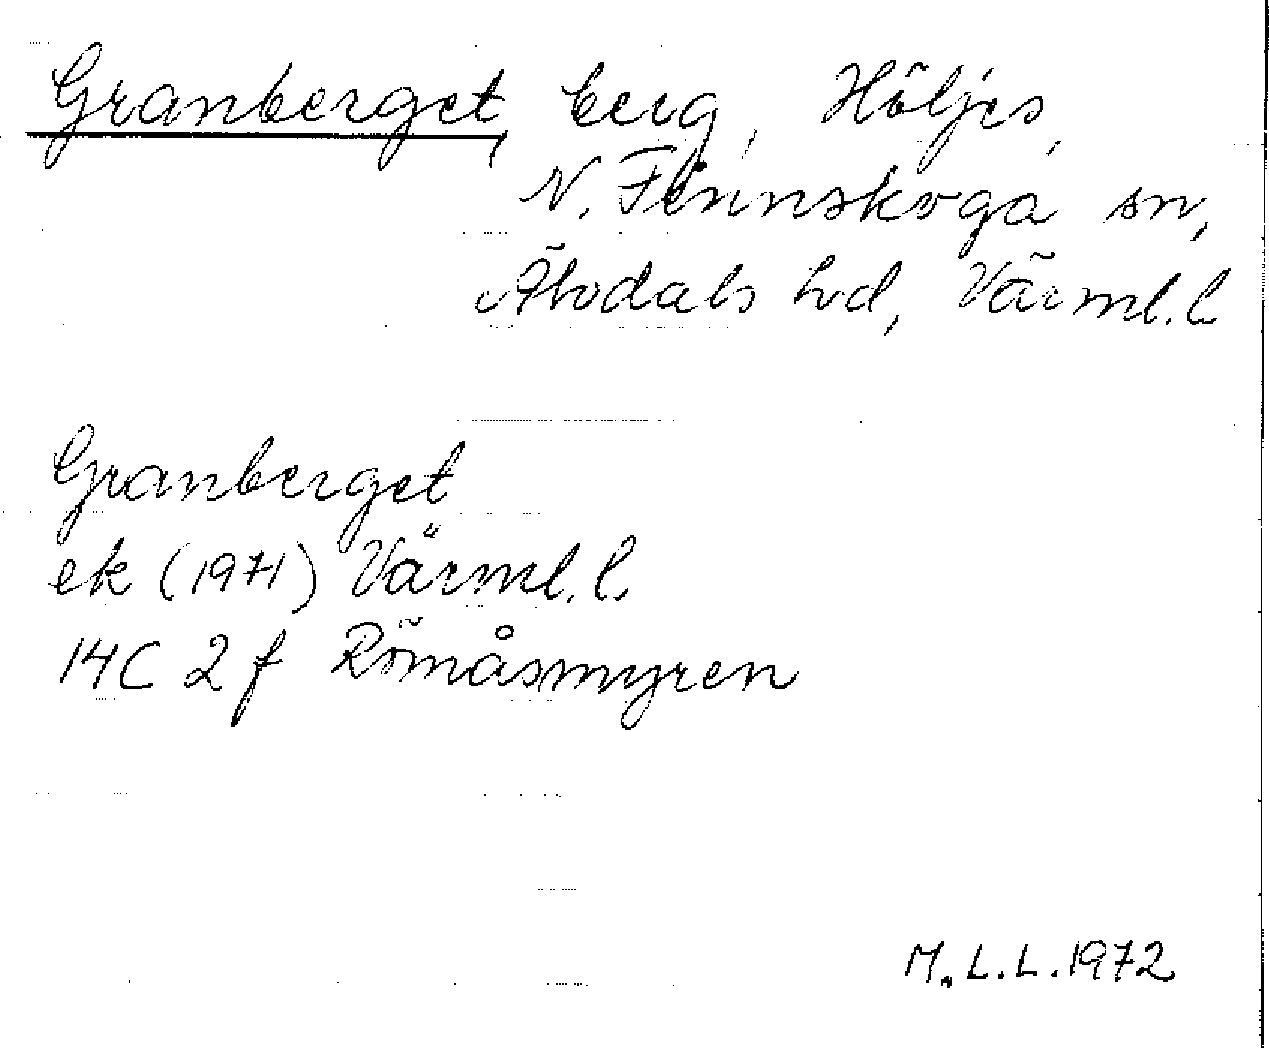 Granberget, berg, Höljes,
N. Finnskoga sn,
Älvdals hd, Värml. l.
Granberget
ek (1971) Värml. l.
14C 2 f Römåsmyren
M.L.L. 1972